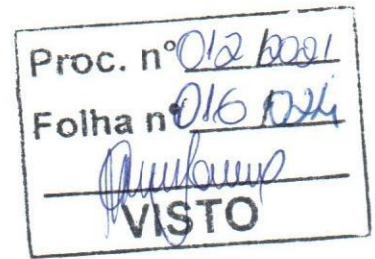 Proc. nº 012/2021
Folha nº 016
VISTO